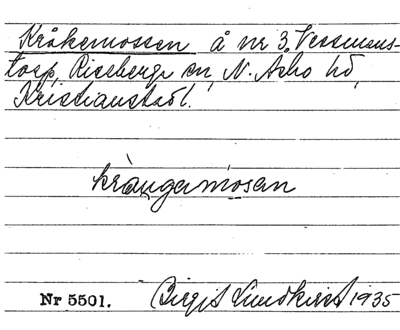 Kråkemossen å nr 3, Vessmans-
torp, Riseberga sn, N. Åsbo hd,
Kristianstads l.
krångamosan
Nr 5501. Birgit Lundkvist 1935